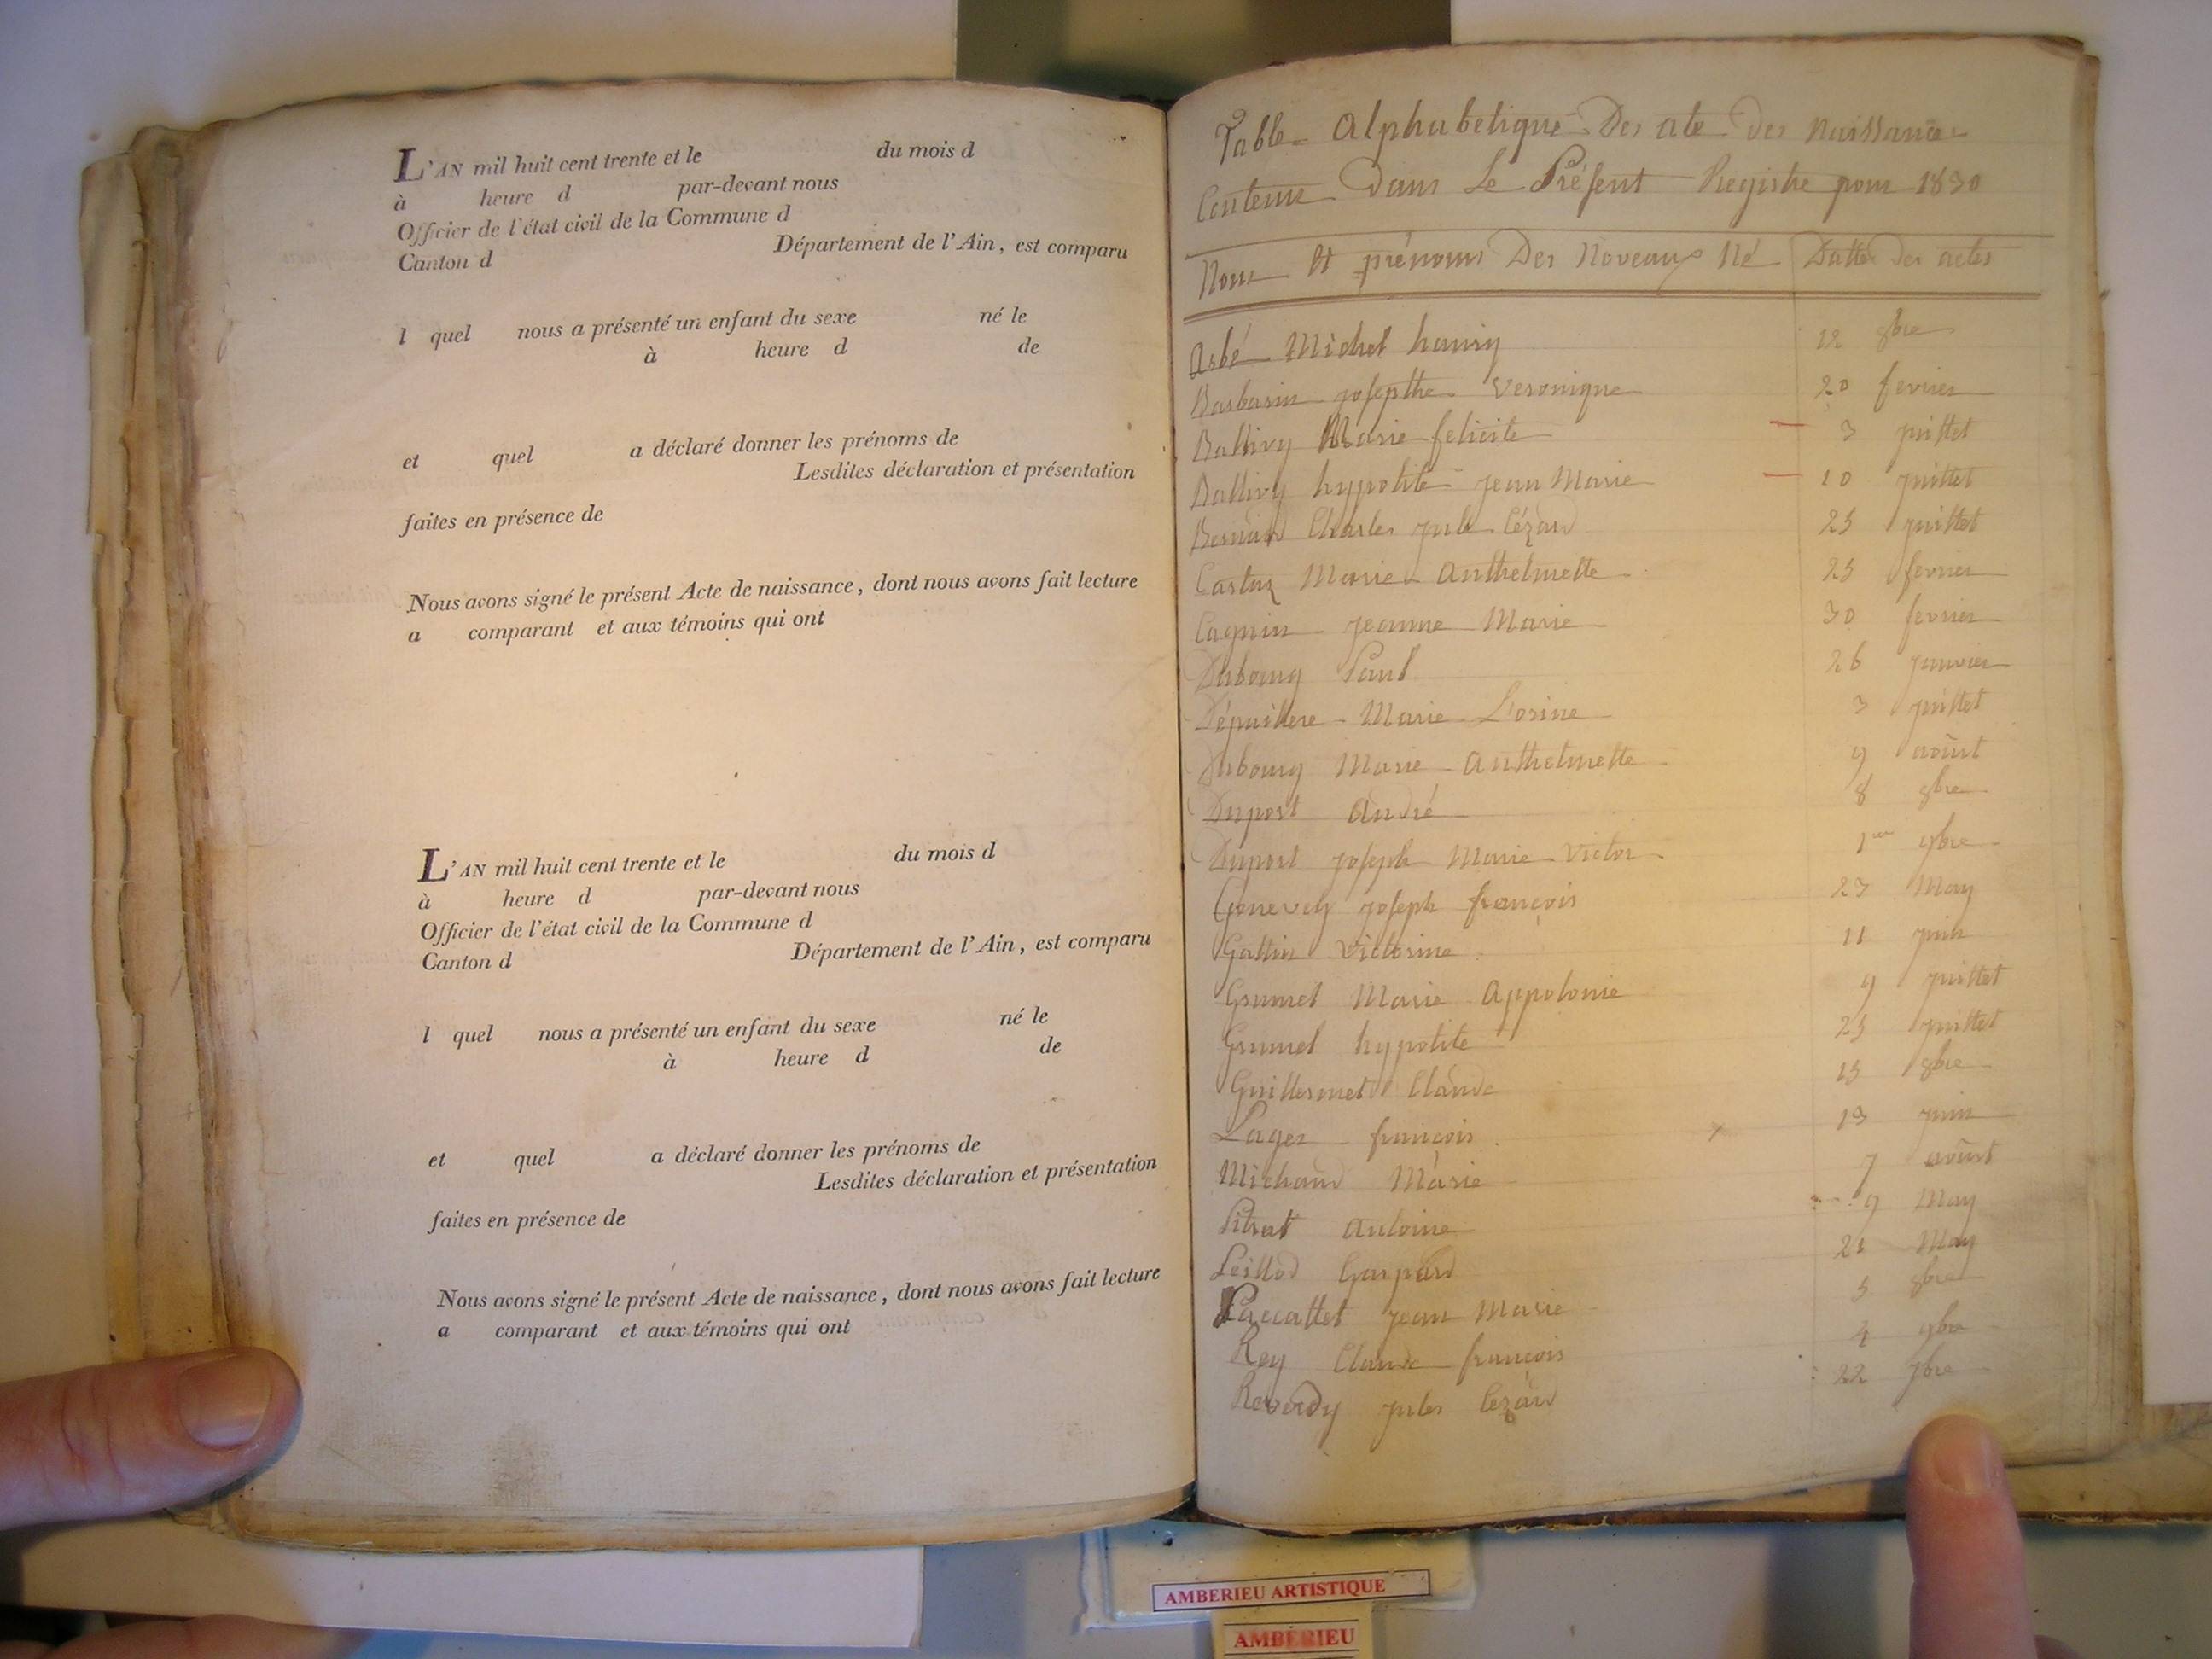 L'AN mil huit cent trente et le du mois d
à heure d par-devant nous
Officier de l'état civil de la Commune d
Canton d Département de l'Ain, est comparu
l quel nous a présenté un enfant du sexe né le
à heure d de
et quel a déclaré donner les prénoms de
Lesdites déclaration et présentation
faites en présence de
Nous avons signé le présent Acte de naissance, dont nous avons fait lecture
a comparant et aux témoins qui ont
L'AN mil huit cent trente et le du mois d
à heure d par-devant nous
Officier de l'état civil de la Commune d
Canton d Département de l'Ain, est comparu
l quel nous a présenté un enfant du sexe né le
à heure d de
et quel a déclaré donner les prénoms de
Lesdites déclaration et présentation
faites en présence de
Nous avons signé le présent Acte de naissance, dont nous avons fait lecture
a comparant et aux témoins qui ont
Table Alphabetique Des ate des naissance
Contenue Dans Le Présent Registre pour 1830
Nom Et prénoms Des Noveaux Né Datte des actes
Michel hanry 12 8bre
Barbarin josepthe Veronique 20 fevrier
Ballivy Marie felicite 3 juillet
Ballivy hypolite jean Marie 10 juillet
Bernard Charles jule Cézard 25 juillet
Marie Anthelmette 25 fevrier
Cagnin jeanne Marie 30 fevrier
Dubourg Paul 26 janvier
Marie 3 juillet
Dubourg Marie Anthelmette 9 août
Duport André 8 8bre
Duport joseph Marie Victor 1er 9bre
Genevey joseph françois 23 May
Gallin Victorine 11 juin
Grumel Marie Appolonie 9 juillet
Grumel hypolite 25 juillet
Guillermet Claude 15 8bre
Lager françois 13 juin
Michaud Marie 7 août
Pitrat Antoine 9 May
Gaspard 21 May
Paccallet jean Marie 5 8bre
Rey Claude françois 4 9bre
Reverdy jules Cézard 22 7bre
AMBERIEU ARTISTIQUE
AMBERIEU